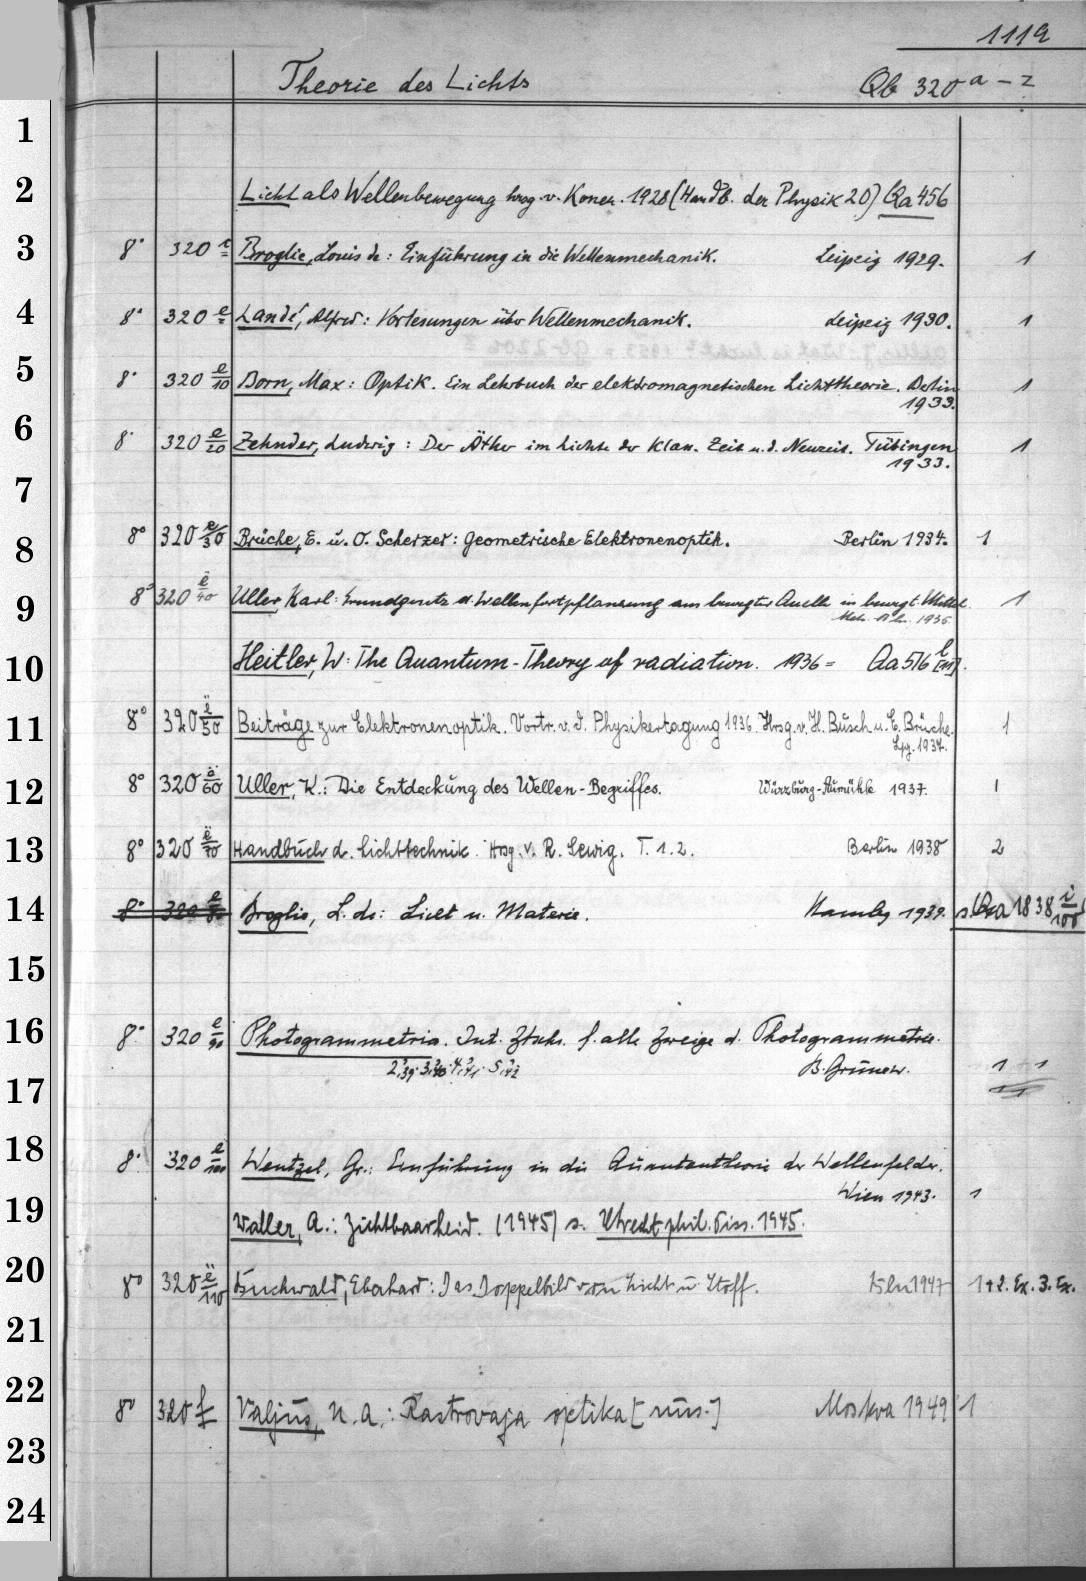 1119
Theorie des Lichts Qb 320 a – z
1
2 Licht als Wellenbewegung hrsg. v. Konen. 1928 (Handb. der Physik 20) Qa 456
3 8° 320 Broglie, Louis de: Einführung in die Wellenmechanik. Leipzig 1929. 1
4 8° 320 e Landé, Alfred: Vorlesungen über Wellenmechanik. Leipzig 1930. 1
5 8° 320 e/10 Born, Max: Optik. Ein Lehrbuch der elektromagnetischen Lichttheorie. Berlin 1
1933.
6 8° 320 e/20 Zehnder, Ludwig: Der Äther im Lichte der klass. Zeit u. d. Neuzeit. Tübingen 1
1933.
7
8 8° 320 e/30 Brüche, E. u. O. Scherzer: Geometrische Elektronenoptik. Berlin 1934. 1
9 8° 320 e/40 Uller Karl: Grundgesetz d. Wellenfortpflanzung aus bewegter Quelle in bewegt. Mittel 1
1935
10 Heitler, W: The Quantum-Theory of radiation. 1936 = Qa 516
11 8° 320 e/50 Beiträge zur Elektronenoptik. Vortr. v. d. Physikertagung 1936. Hrsg. v. H. Busch u. E. Brüche. 1
Lpg. 1937.
12 8° 320 e/60 Uller, K.: Die Entdeckung des Wellen-Begriffes. Würzburg-Aumühle 1937. 1
13 8° 320 e/70 Handbuch d. Lichttechnik. Hrsg. v. R. Sewig. T. 1.2. Berlin 1938 2
14 8° 320 e/80 Broglie, L. de: Licht u. Materie. Hambg 1939. s. Qa 1838 i/100
15
16 8° 320 e/90 Photogrammetria. Int. Ztschr. f. alle Zweige d. Photogrammetrie.
2,39. 3,40. 4,41. 5,42 B.-Grunew. 1 + 1
17
18 8° 320 e/100 Wentzel, Gr.: Einführung in die Quantentheorie der Wellenfelder.
Wien 1943. 1
19 Waller, A.: Zichtbaarheid. (1945) s. Utrecht phil. Diss. 1945.
20 8° 320 e/110 Buchwald, Eberhard: Das Doppelbild von Licht u. Stoff. Bln 1947 1+2. Ex. 3. Ex.
21
22 8° 320 f Valjus, N. A.: Rastrovaja optika [russ.] Moskva 1949 1
23
24